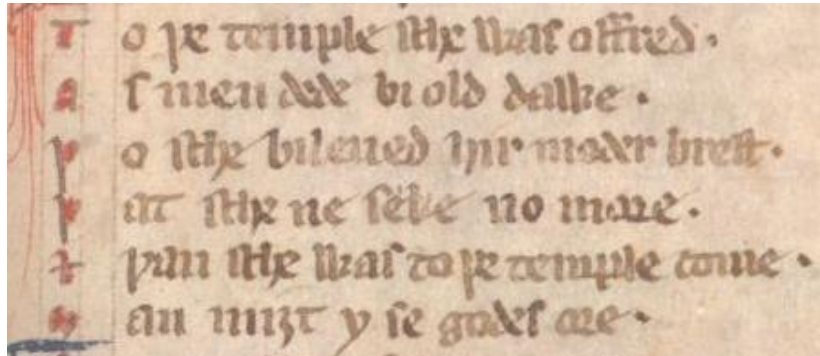 To þe temple sche was offred.
As men dede bi old dawe.
Þo sche bileued hir moder brest.
Þat sche ne seke no more.
⁊ þan sche was to þe temple come.
Man miȝt y se godes ore.